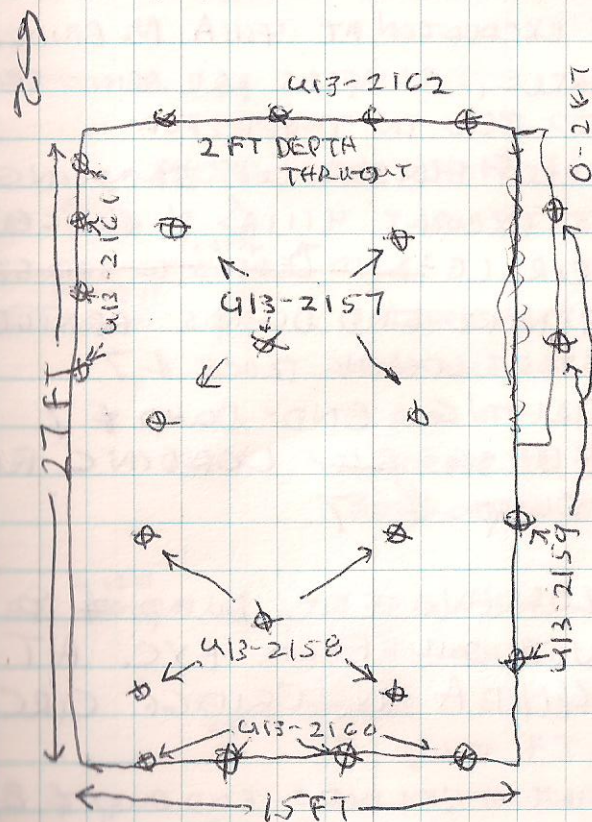 N
U13-2162
2 FT DEPTH
THRUOUT
U13-2161
0-2 FT
U13-2157
27 FT
U13-2159
U13-2158
U13-2160
15 FT